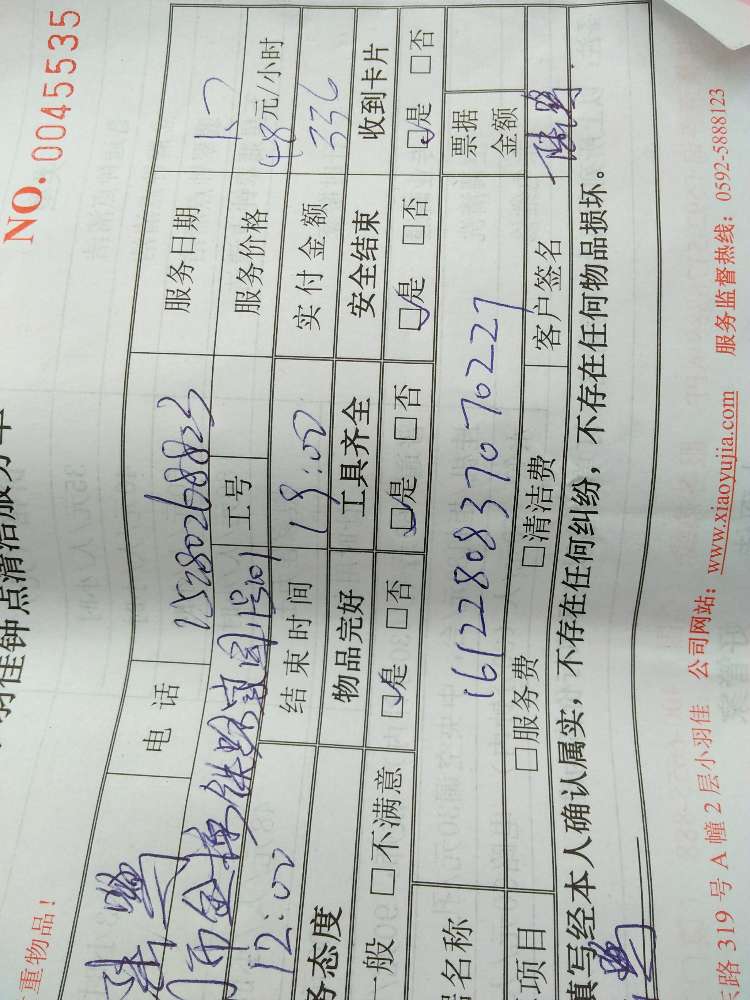 NO. 0045535
羽佳钟点清洁服务单
重物品!
电话 15280268823 服务日期
工号 服务价格 48元/小时
12:00 结束时间 19:00 实付金额 336
务态度 物品完好 工具齐全 安全结束 收到卡片
一般 □不满意 ☑是 □否 ☑是 □否 ☑是 □否 ☑是 □否
名称 161228083707022 票据金额
项目 □服务费 □清洁费 客户签名
填写经本人确认属实,不存在任何纠纷,不存在任何物品损坏。
路 319 号 A 幢 2 层小羽佳 公司网站:www.xiaoyujia.com 服务监督热线:0592-5888123